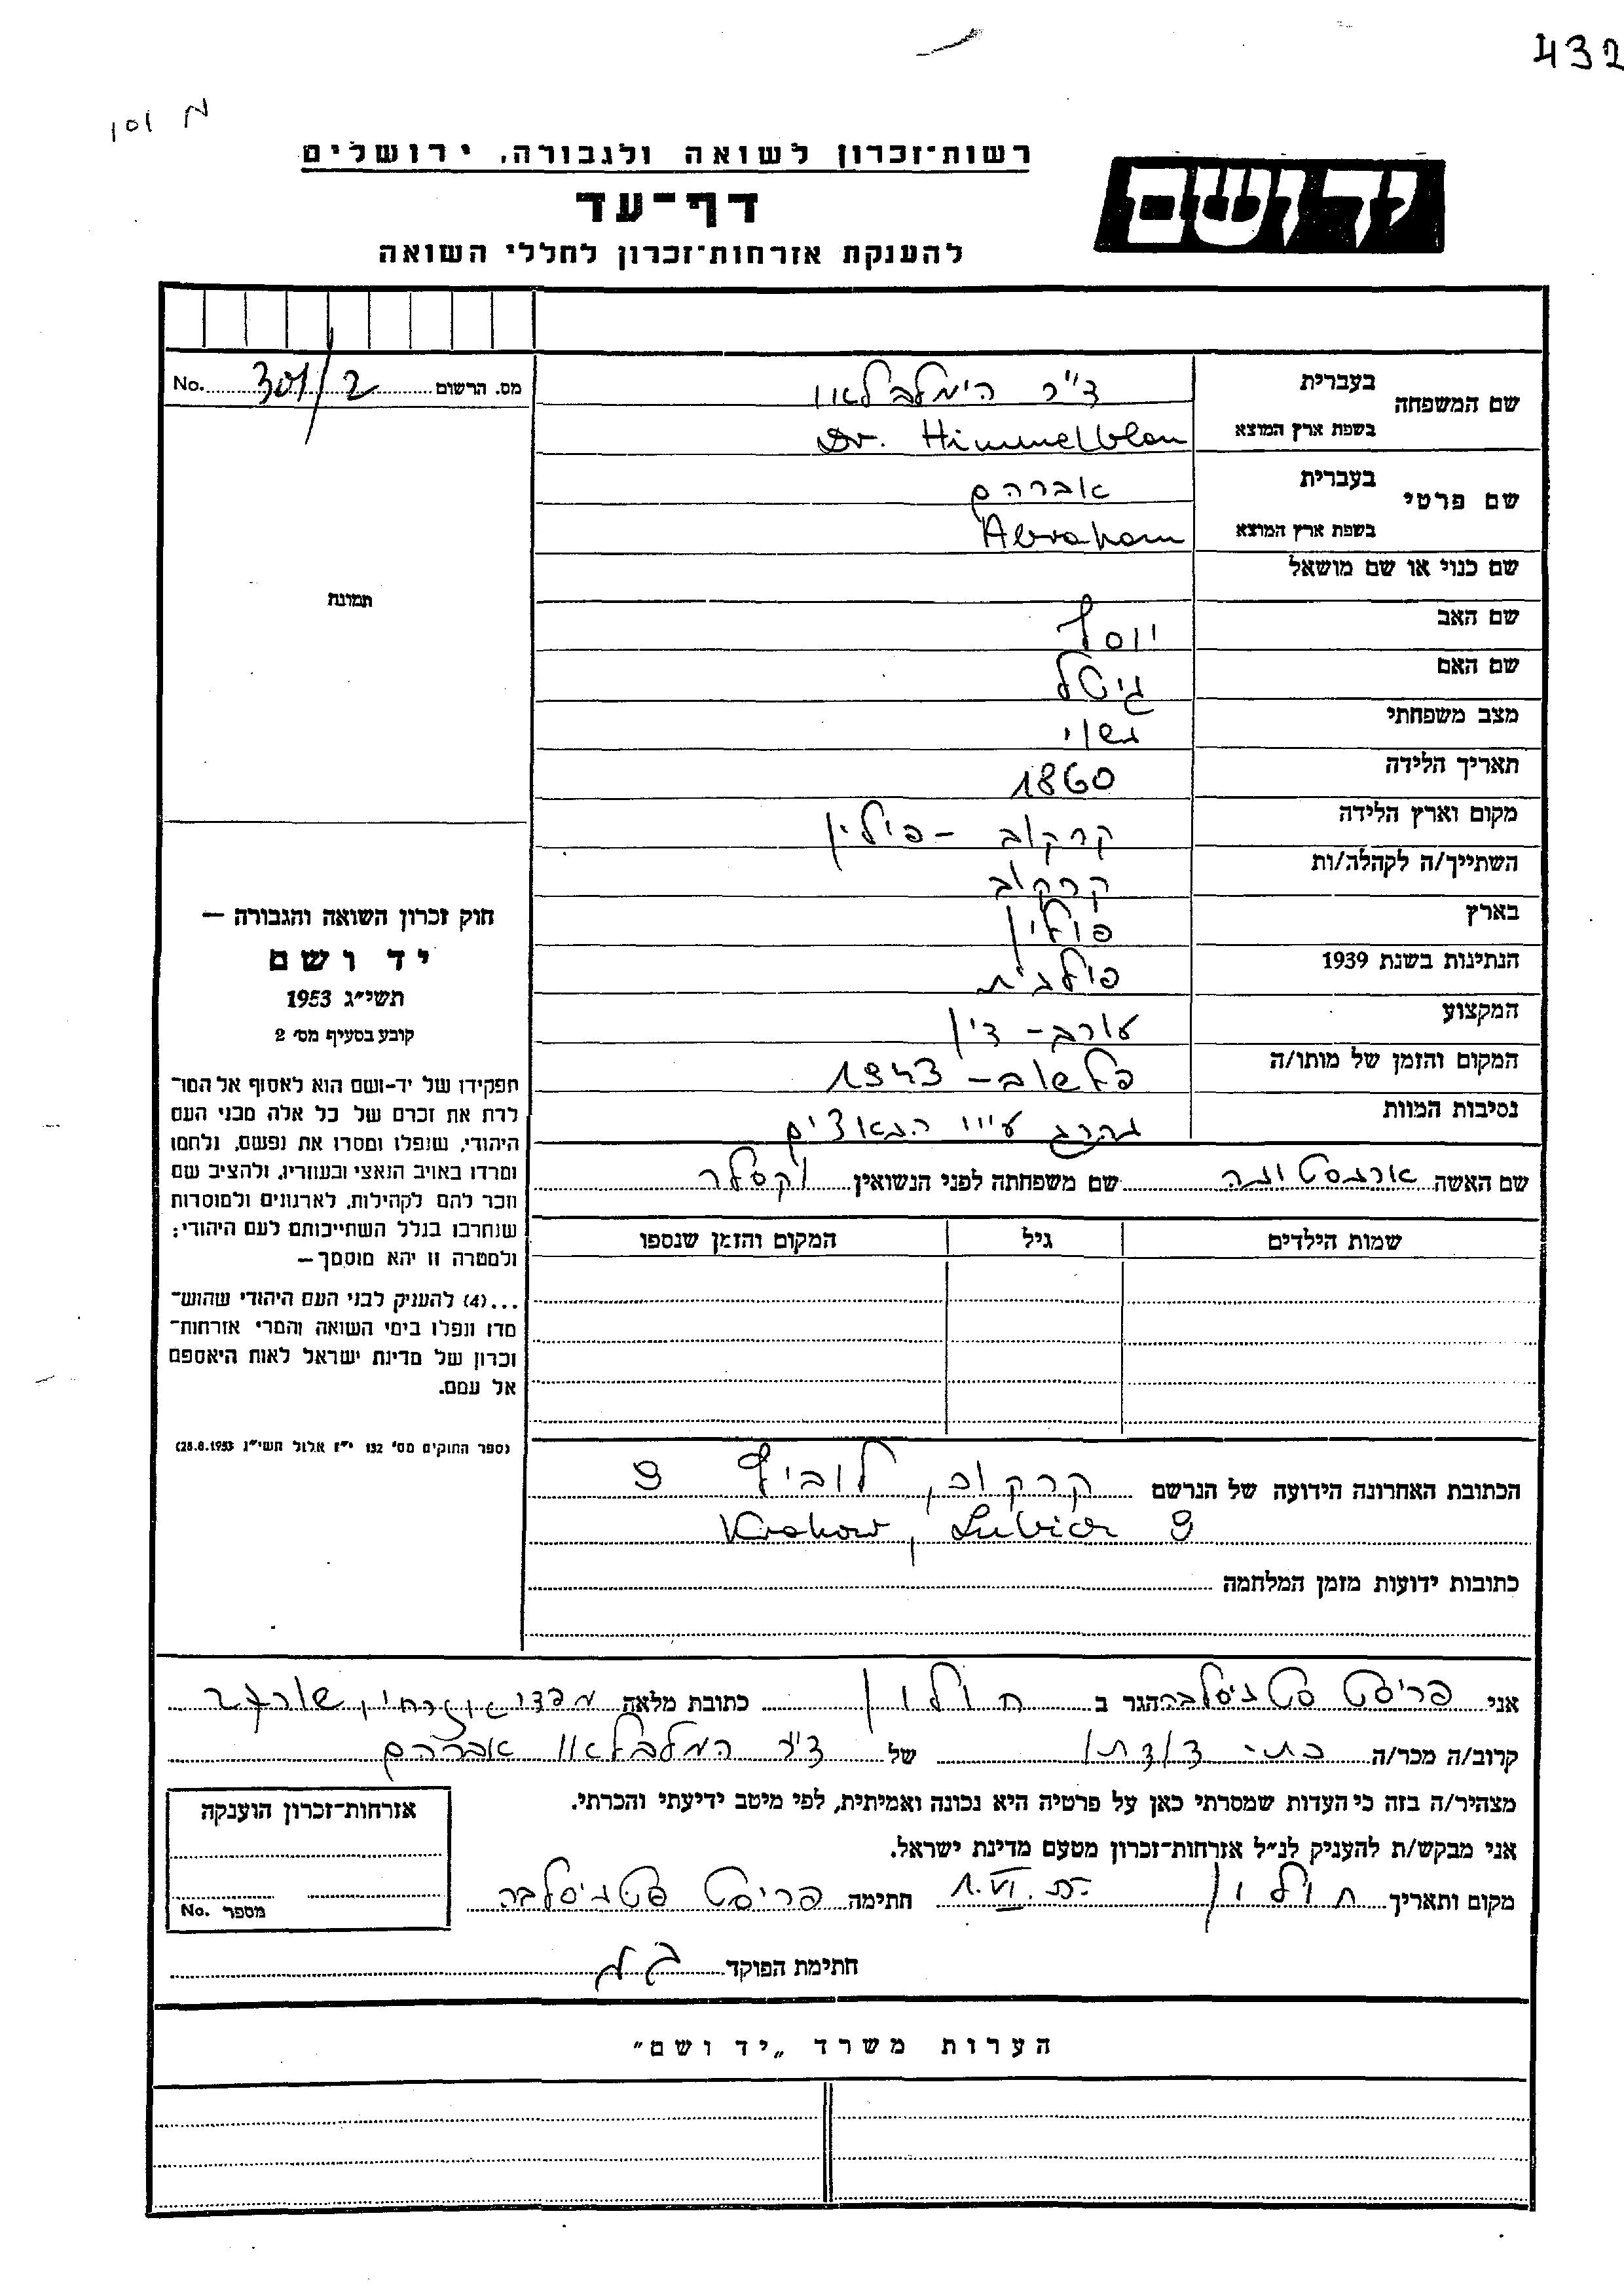 432
101 מ
רשות־זכרון לשואה ולגבורה, ירושלים
יד ושם
דף־עד
להענקת אזרחות־זכרון לחללי השואה
No. 301/2 מס. הרשום
שם המשפחה בעברית ד"ר הימלבלאו
בשפת ארץ המוצא Dr. Himmelblau
שם פרטי בעברית אברהם
בשפת ארץ המוצא Abraham
שם כנוי או שם מושאל
תמונה
שם האב יוסף
שם האם גיטל
מצב משפחתי נשוי
תאריך הלידה 1860
מקום וארץ הלידה קרקוב - פולין
השתייך/ה לקהלה/ות קרקוב
בארץ פולין
הנתינות בשנת 1939 פולנית
המקצוע עורב - דין
המקום והזמן של מותו/ה פלשוב - 1943
נסיבות המוות נהרג ע"י הנאצים
שם האשה ארנסטונה שם משפחתה לפני הנשואין וקסלר
שמות הילדים גיל המקום והזמן שנספו
חוק זכרון השואה והגבורה —
יד ושם
תשי״ג 1953
קובע בסעיף מס׳ 2
תפקידו של יד-ושם הוא לאסוף אל המו־
לדת את זכרם של כל אלה מבני העם
היהודי, שנפלו ומסרו את נפשם, נלחמו
ומרדו באויב הנאצי ובעוזריו, ולהציב שם
וזכר להם לקהילות, לארגונים ולמוסדות
שנחרבו בגלל השתייכותם לעם היהודי;
ולמטרה זו יהא מוסמך—
...(4) להעניק לבני העם היהודי שהוש־
מדו ונפלו בימי השואה והמרי אזרחות־
זכרון של מדינת ישראל לאות היאספם
אל עמם.
(ספר החוקים מס׳ 132 י״ז אלול תשי״ג 28.8.1953)
הכתובת האחרונה הידועה של הנרשם קרקוב, לוביץ 9
Krakow, Lubicz 9
כתובות ידועות מזמן המלחמה
אני פריסט סטניסלבה הגר ב חולון כתובת מלאה
קרוב/ה מכר/ה בת־דודתו של ד"ר המלבלאו אברהם
מצהיר/ה בזה כי העדות שמסרתי כאן על פרטיה היא נכונה ואמיתית, לפי מיטב ידיעתי והכרתי.
אני מבקש/ת להעניק לנ״ל אזרחות־זכרון מטעם מדינת ישראל.
מקום ותאריך חולון 1.VI. חתימה פריסט סטניסלבה
אזרחות־זכרון הוענקה
מספר No.
חתימת הפוקד
הערות משרד „יד ושם״